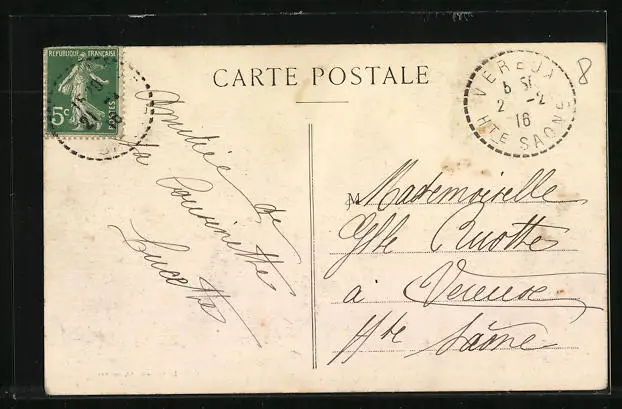 RÉPUBLIQUE FRANÇAISE
5c
POSTES
CARTE POSTALE
VEREUX
5 Sr
2 -2
16
HTE SAONE
8
Amitiés de
ta Cousinette
Lucette
M Mademoiselle
Cuotte
à Vereux
Hte Saône